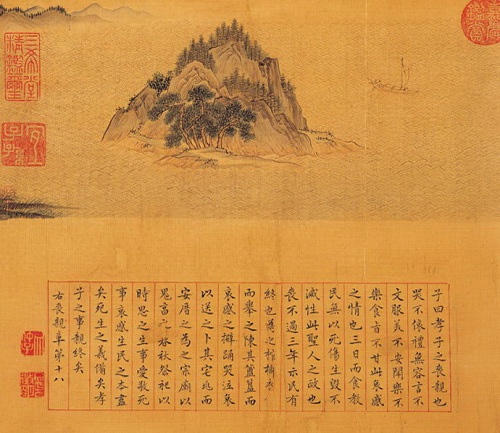 三希堂精鑑璽
宜子孫
子曰孝子之喪親也
哭不偯禮無容言不
文服美不安聞樂不
樂食旨不甘此哀慼
之情也三日而食教
民無以死傷生毀不
滅性此聖人之政也
喪不過三年示民有
終也為之棺椁衣
而舉之陳其簠簋而
哀慼之擗踊哭泣哀
以送之卜其宅兆而
安厝之為之宗廟以
鬼享之春秋祭祀以
時思之生事愛敬死
事哀慼生民之本盡
矣死生之義備矣孝
子之事親終矣
右喪親章第十八